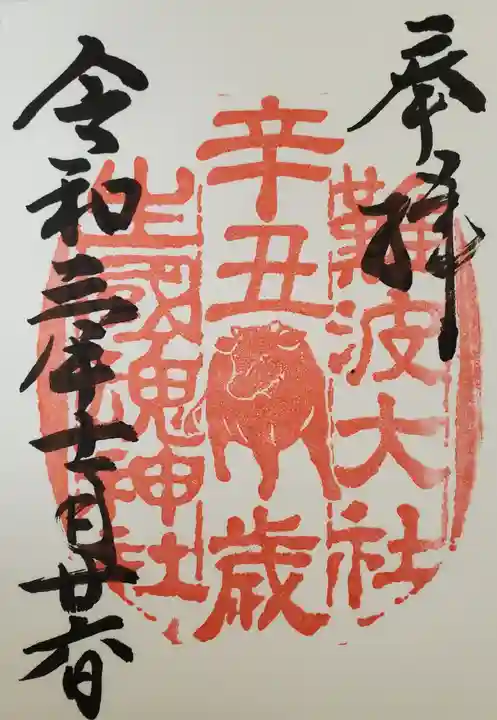 奉拝
難波大社
辛丑歳
生國魂神社
令和三年十一月廿六日